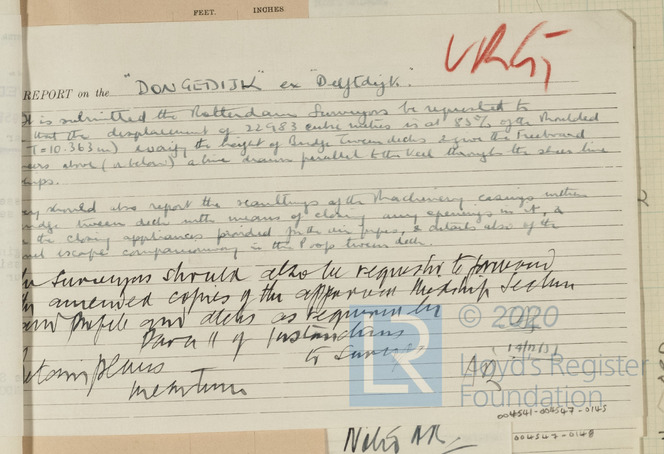 FEET. INCHES.
URG
REPORT on the "DONGEDIJK" ex "Delftdijk".
It is submitted the Rotterdam Surveyors be requested to
that the displacement of 22983 cubic metres is at 85% of the Moulded
(T=10.363m) verify the height of Bridge tween decks & give the Freeboard
above (or below) a line drawn parallel to the keel through the sheer line
ships.
should also report the scantlings of the Machinery casings within
tween decks with means of closing any openings in it, &
the closing appliances provided for the air pipes, & details also of the
escape companionway in the Poop tween deck.
Surveyors should also be requested to forward
amended copies of the approved Midship Section
and Profile and decks as required by
Para 11 of Instructions
to Surveyors
retain plans
meantime
© 2020
Lloyd's Register
Foundation
LR
004541-004547-0145
004547-0148